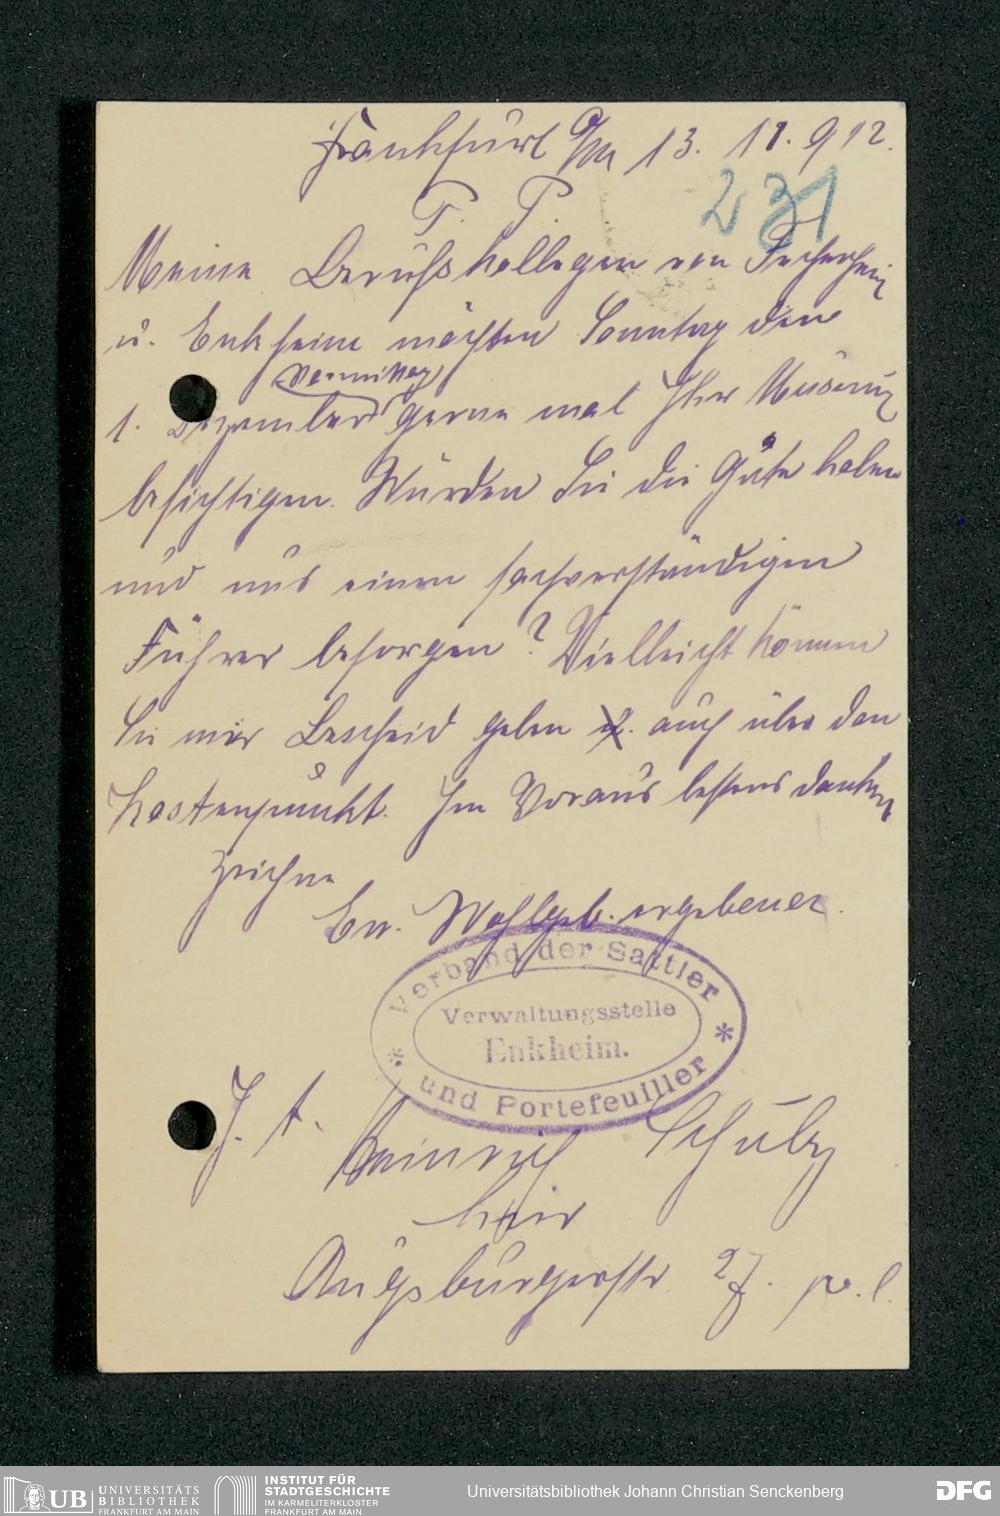 Frankfurt a/M 13. 11. 912.
231
P. P.
Meine Berufskollegen von Fechenheim
u. Enkheim möchten Sonntag den
Vormittag
1. Dezember gerne mal Ihr Museum
besichtigen. Würden Sie die Güte haben
und uns einen sachverständigen
Führer besorgen? Vielleicht können
Sie mir Bescheid geben auch über den
Kostenpunkt. Im Voraus bestens dankend
zeichne
Ew. Wohlgeb. ergebener.
Verband der Sattler
Verwaltungsstelle
Enkheim.
und Portefeuiller
I. A.
Heinrich Schulz
hier
Augsburgerstr 27. p. l.
UB UNIVERSITÄTS
BIBLIOTHEK
FRANKFURT AM MAIN
INSTITUT FÜR
STADTGESCHICHTE
IM KARMELITERKLOSTER
FRANKFURT AM MAIN
Universitätsbibliothek Johann Christian Senckenberg
DFG